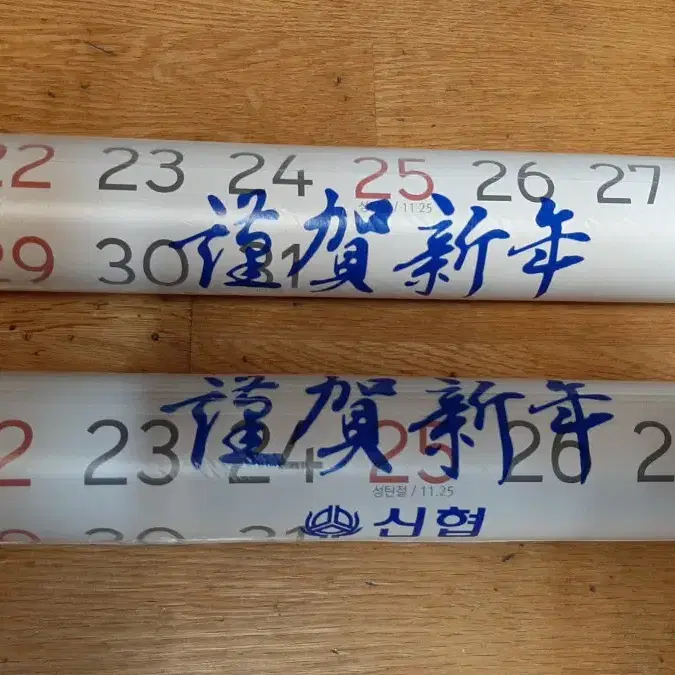 22 23 24 25 26 27
성탄절 / 11.25
謹賀新年
29 30 31
謹賀新年
22 23 24 25 26 2
성탄절 / 11.25
신협
29 30 31